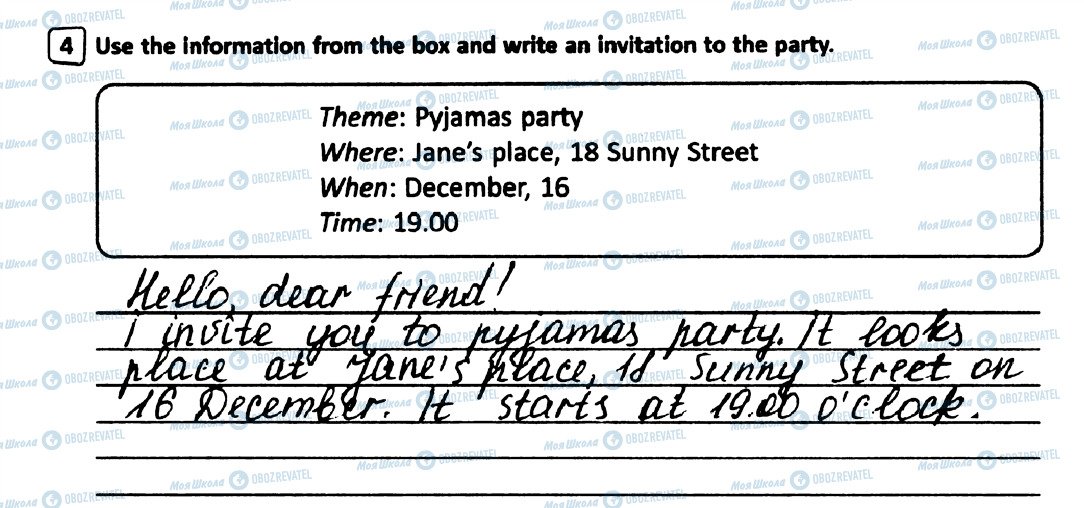 4 Use the information from the box and write an invitation to the party.
Theme: Pyjamas party
Where: Jane's place, 18 Sunny Street
When: December, 16
Time: 19.00
Hello, dear friend!
I invite you to pyjamas party. It looks
place at Jane's place, 18 Sunny Street on
16 December. It starts at 19.00 o'clock.
МояШкола OBOZREVATEL